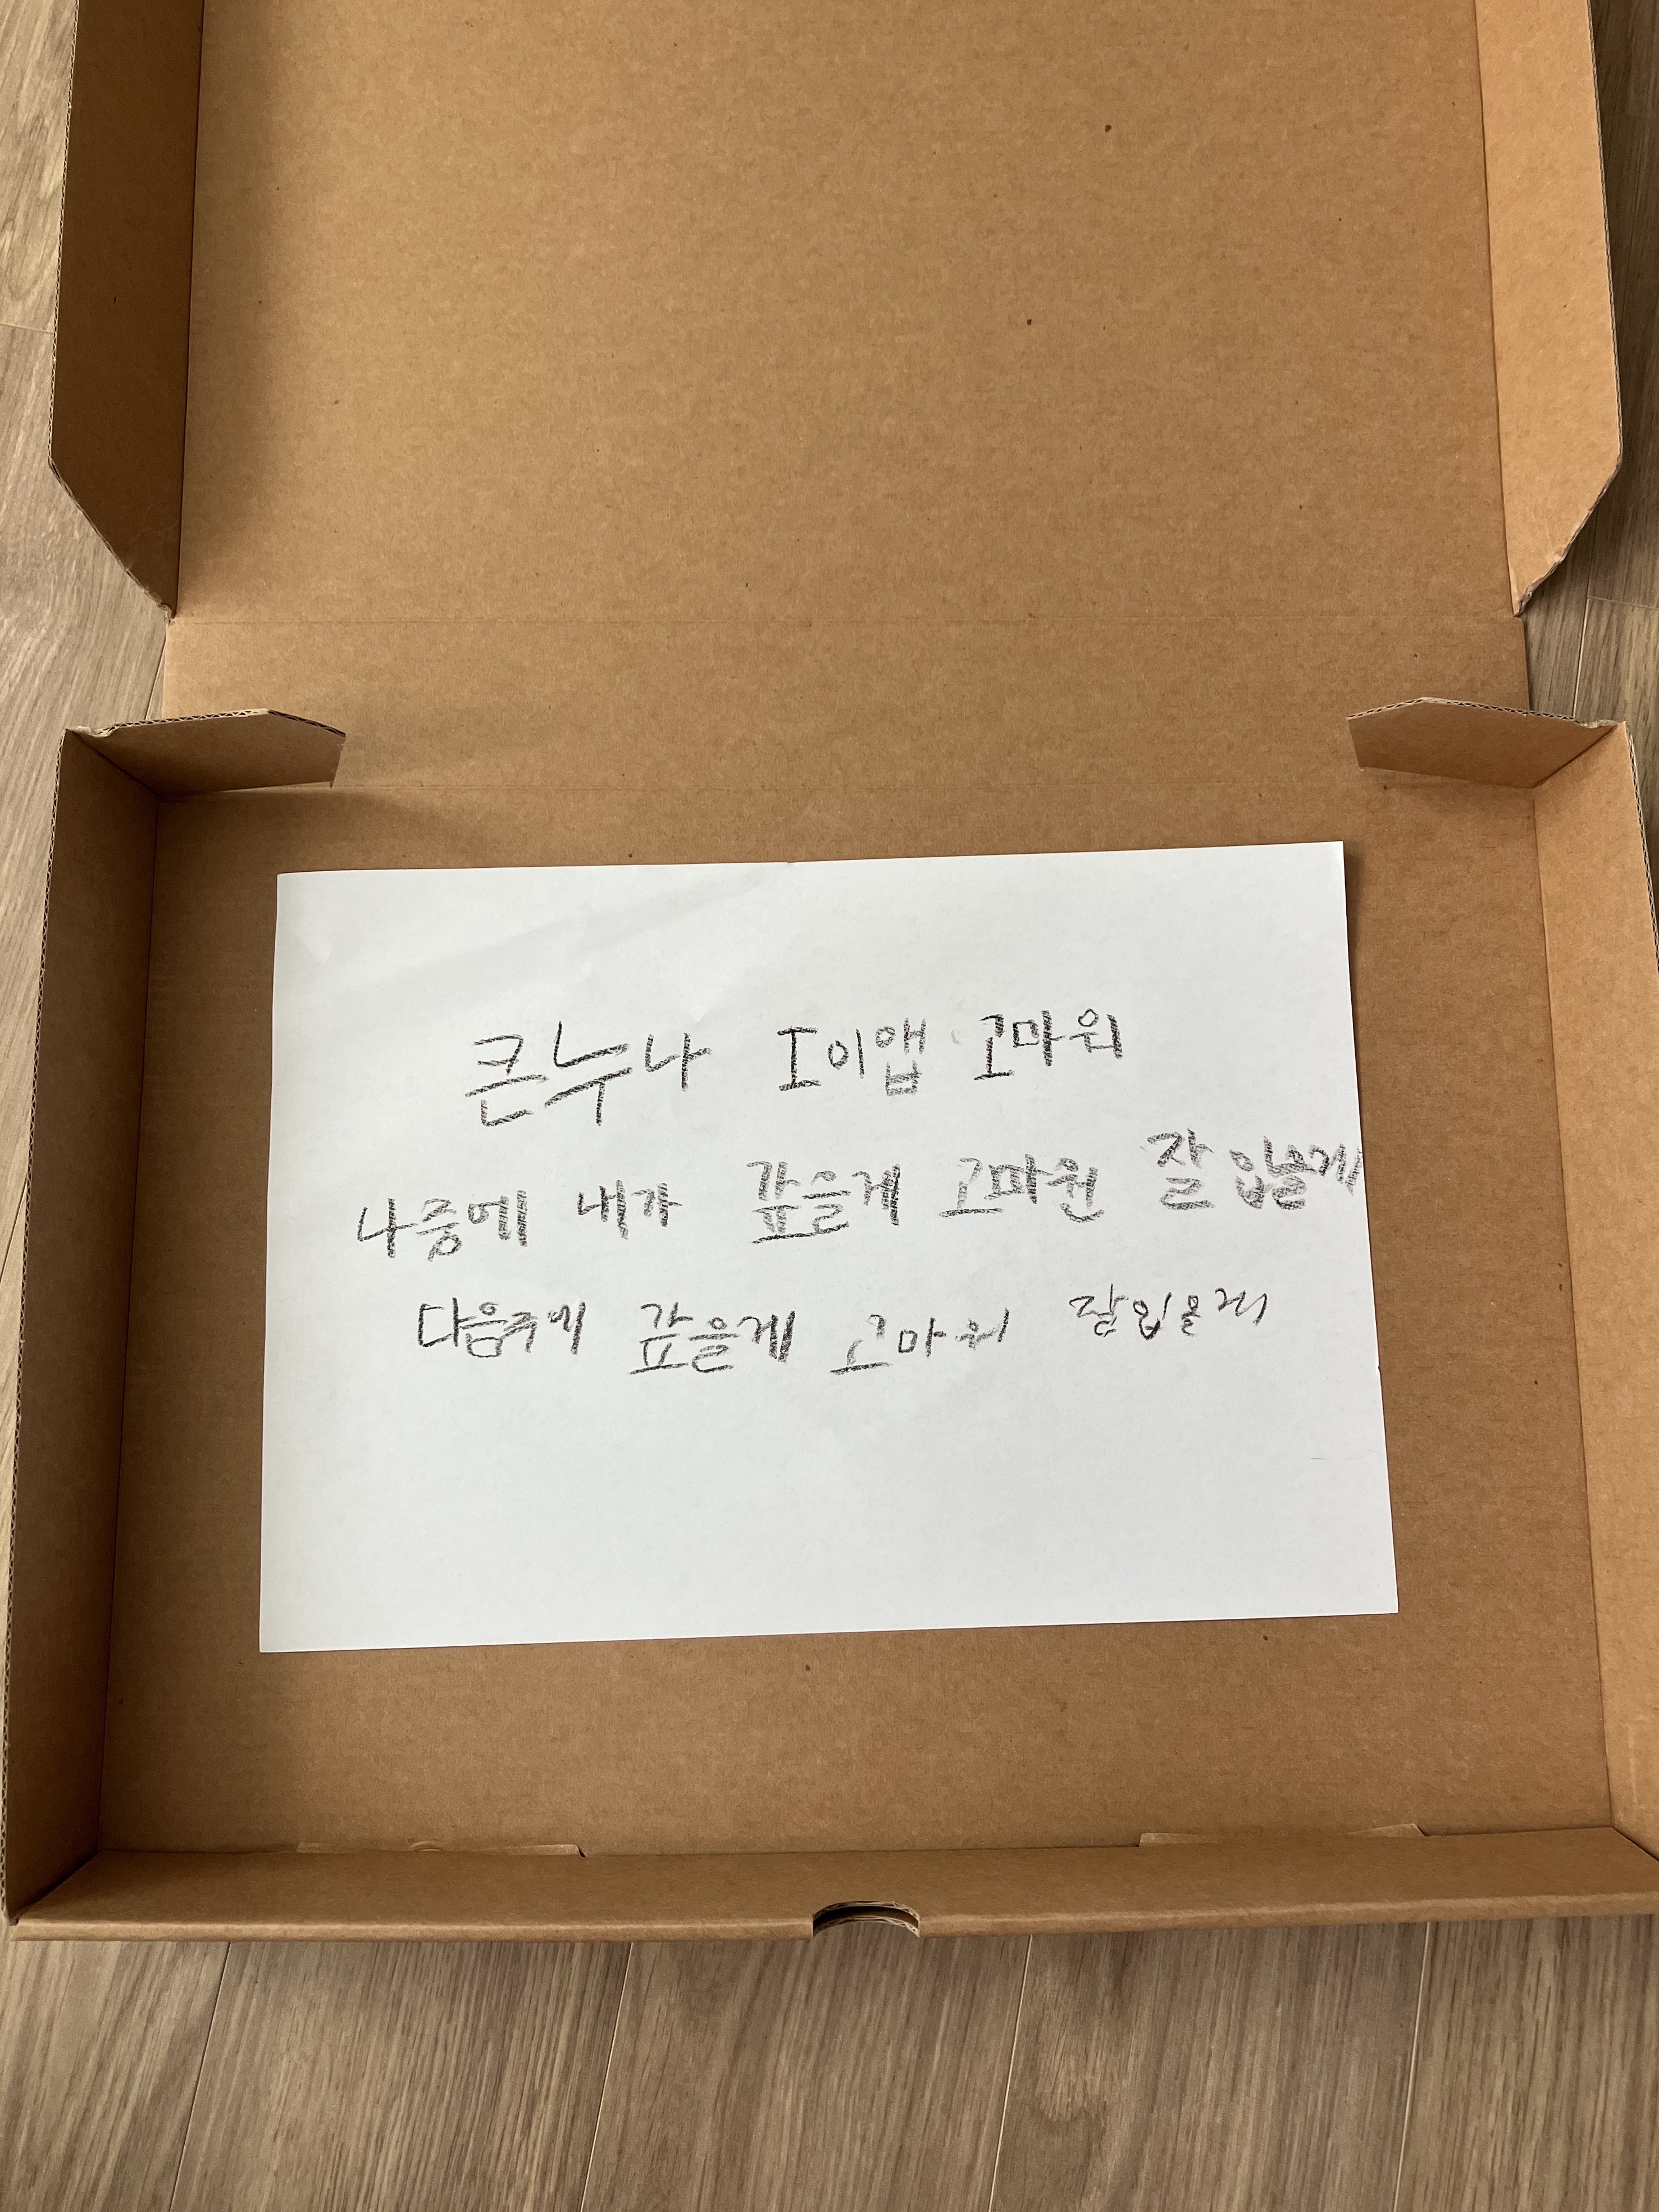 큰누나 I이앱 고마워
나중에 내가 갚을게 고마워 잘 입을게
다음주에 갚을게 고마워 잘입을게